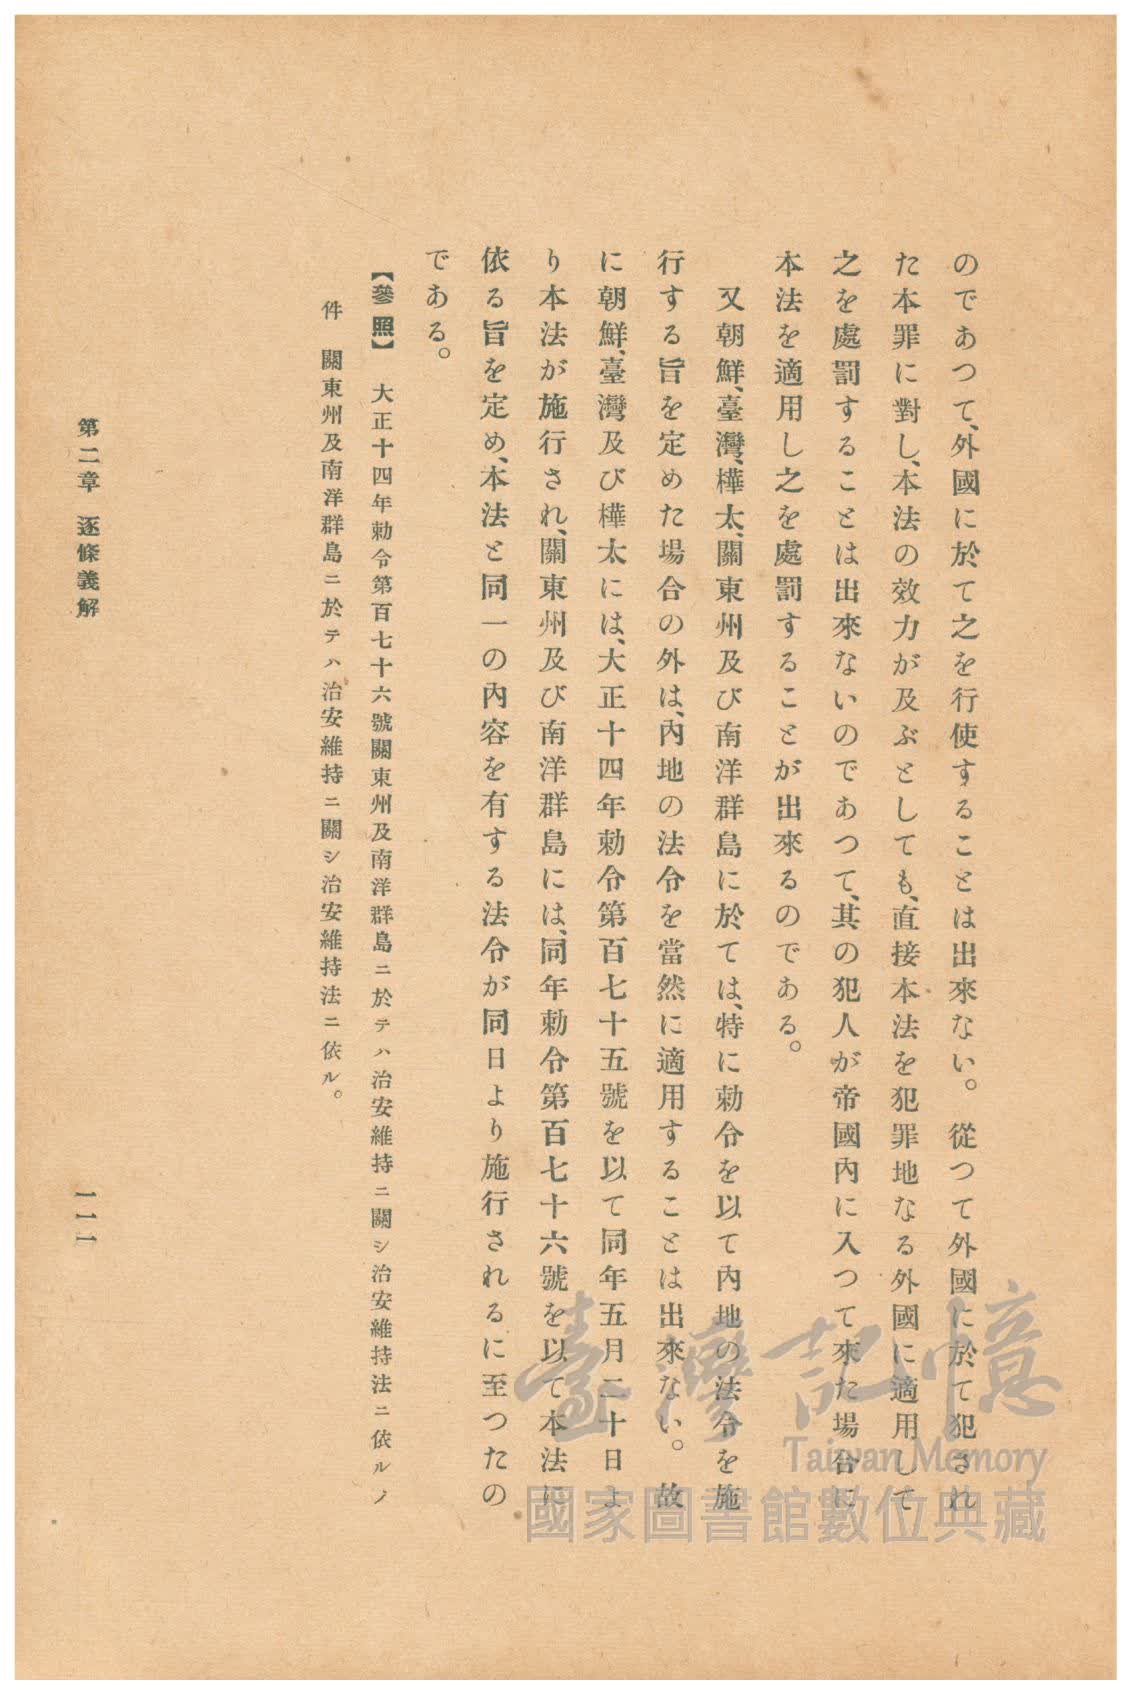 のであつて、外國に於て之を行使することは出來ない。從つて外國に於て犯され
た本罪に對し、本法の效力が及ぶとしても、直接本法を犯罪地なる外國に適用して
之を處罰することは出來ないのであつて、其の犯人が帝國內に入つて來た場合に
本法を適用し之を處罰することが出來るのである。
又朝鮮、臺灣、樺太、關東州及び南洋群島に於ては、特に勅令を以て內地の法令を施
行する旨を定めた場合の外は、內地の法令を當然に適用することは出來ない。故
に朝鮮、臺灣及び樺太には、大正十四年勅令第百七十五號を以て同年五月二十日よ
り本法が施行され、關東州及び南洋群島には、同年勅令第百七十六號を以て本法に
依る旨を定め、本法と同一の內容を有する法令が同日より施行されるに至つたの
である。
【參照】 大正十四年勅令第百七十六號關東州及南洋群島ニ於テハ治安維持ニ關シ治安維持法ニ依ルノ
件 關東州及南洋群島ニ於テハ治安維持ニ關シ治安維持法ニ依ル。
第二章 逐條義解
一一一
臺灣記憶
Taiwan Memory
國家圖書館數位典藏